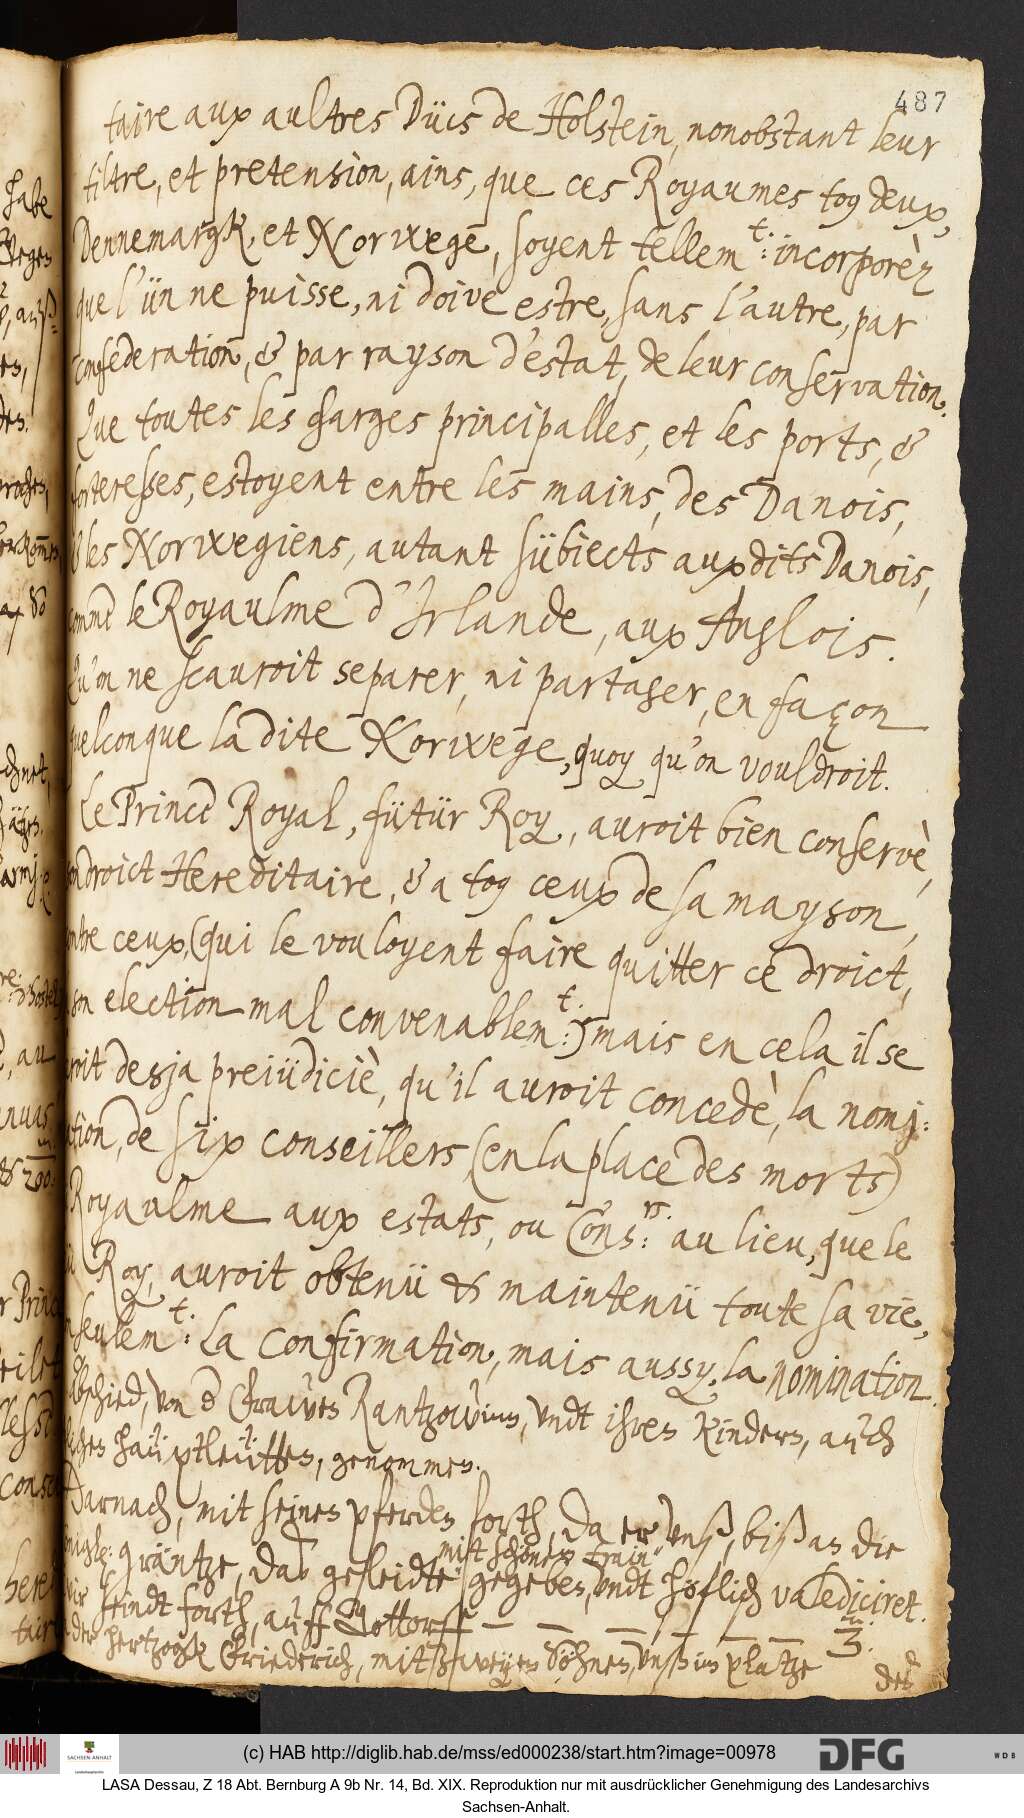 487
taire aux aultres Dücs de Holstein, nonobstant leur
tiltre, et pretension, ains, que ces Royaumes tous deux,
Dennemargk, et Norwege, soyent tellem.t: incorporèz
que l'ün ne puisse, ni doive estre, sans l'autre, par
confederation, & par rayson d'estat, de leur conservation.
Que toutes les charges principalles, et les ports, &
forteresses, estoyent entre les mains, des Danois,
& les Norwegiens, autant sübiects auxdits Danois,
comme le Royaulme d'Irlande, aux Anglois.
Qu'on ne scauroit separer, ni partager, en façon
quelconque la dite Norwege, quoy qu'on vouldroit.
Le Prince Royal, fütür Roy, auroit bien conservè,
son droict Hereditaire, & a tous ceux de sa mayson,
contre ceux, (qui le vouloyent faire quitter ce droict,
son election mal convenablem.t:) mais en cela il se
seroit desja preiüdiciè, qu'il auroit concedè, la nomj:
nation, de six conseillers, (en la place des morts)
Royaulme aux estats, ou Cons:rs. au lieu, que le
Roy, auroit obtenü & maintenü toute sa vie,
seulem.t: la confirmation, mais aussy, la nomination.
Abschied, von d Graven Rantzowen, undt ihren Kindern, auch
haüptleütten, genommen.
Darnach, mit seinen pferden forth, da er, unß, biß an die
gräntze, das geleidte gegeben, undt höflich valediciret.
mit schönem train
wir seindt forth, auff Gottorff — — — — — — 3.
da der hertzogk Friederich, mit zweyen Söhnen, unß im platze
des
(c) HAB http://diglib.hab.de/mss/ed000238/start.htm?image=00978
SACHSEN-ANHALT
DFG
WDB
LASA Dessau, Z 18 Abt. Bernburg A 9b Nr. 14, Bd. XIX. Reproduktion nur mit ausdrücklicher Genehmigung des Landesarchivs
Sachsen-Anhalt.